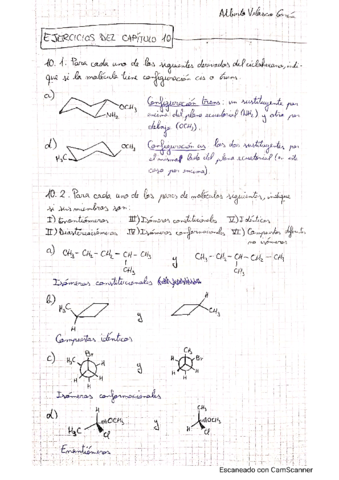 Alberto Velasco
EJERCICIOS DEL CAPÍTULO 10
10.1. Para cada uno de los siguientes derivados del ciclohexano, indi-
que si la molécula tiene configuración cis o trans.
a)
OCH₃
NH₂
Configuración trans: un sustituyente por
encima del plano ecuatorial (NH₂) y otro por
debajo (OCH₃).
d)
H₃C
OCH₃
Configuración cis: los dos sustituyentes por
el mismo lado del plano ecuatorial (en este
caso por encima)
10.2. Para cada uno de los pares de moléculas siguientes, indique
si sus miembros son:
I) Enantiómeros III) Isómeros constitucionales V) Idénticos
II) Diastereoisómeros IV) Isómeros conformacionales VI) Compuestos diferentes
no isómeros
a) CH₃-CH₂-CH₂-CH-CH₃ y CH₃-CH₂-CH-CH₂-CH₃
CH₃ CH₃
Isómeros constitucionales
b)
H
H₃C
y
H
CH₃
Compuestos idénticos
c)
H₃C
Br
H
y
CH₃
H
Br
Isómeros conformacionales
d)
H
H₃C
OCH₃
Cl
y
CH₃
H
OCH₃
Cl
Enantiómeros
Escaneado con CamScanner